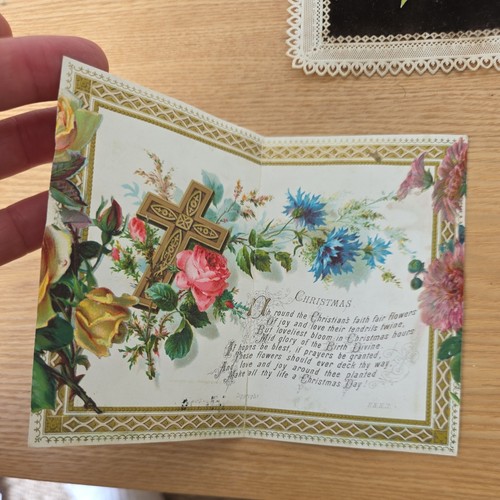 CHRISTMAS
Around the Christian's faith fair flowers
Of joy and love their tendrils twine,
But loveliest bloom in Christmas hours
Mid glory of the Birth Divine
If hopes be blest, if prayers be granted,
These flowers should ever deck thy way,
And love and joy around thee planted
Make all thy life a Christmas Day